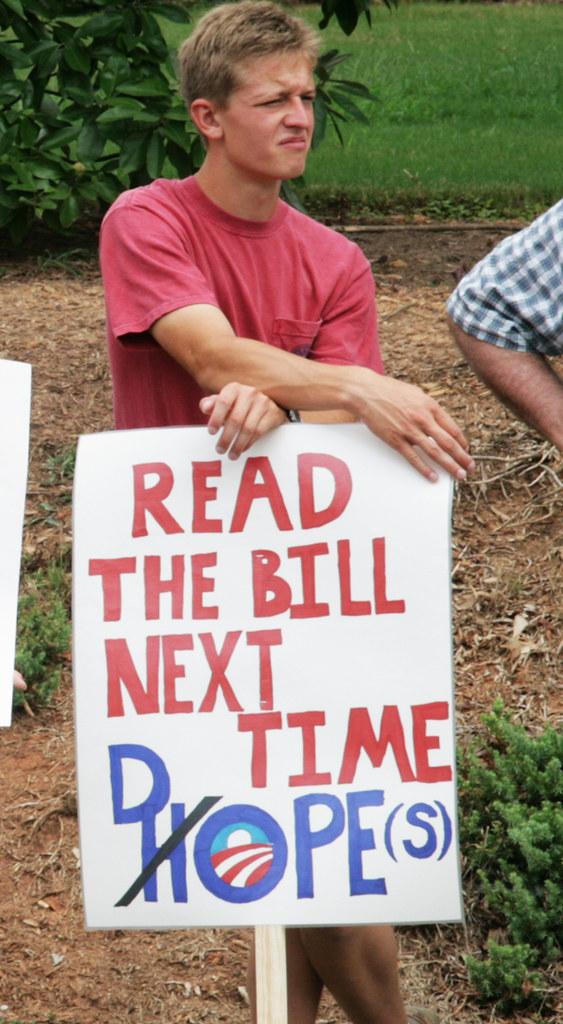 READ
THE BILL
NEXT
TIME
DHOPE(S)